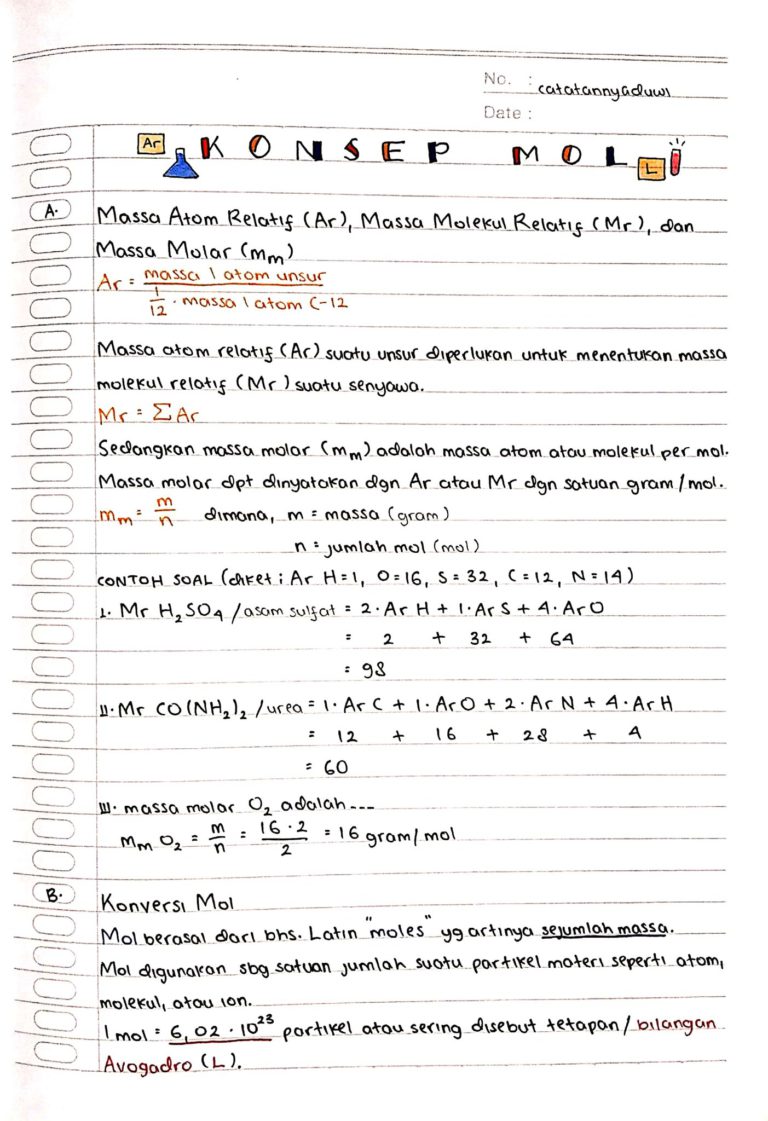 No. : catatannyaduwi
Date :
Ar KONSEP MOL L
A. Massa Atom Relatif (Ar), Massa Molekul Relatif (Mr), dan
Massa Molar (mm)
Ar = massa 1 atom unsur
1/12 · massa 1 atom C-12
Massa atom relatif (Ar) suatu unsur diperlukan untuk menentukan massa
molekul relatif (Mr) suatu senyawa.
Mr = Σ Ar
Sedangkan massa molar (mm) adalah massa atom atau molekul per mol.
Massa molar dpt dinyatakan dgn Ar atau Mr dgn satuan gram/mol.
mm = m/n dimana, m = massa (gram)
n = jumlah mol (mol)
CONTOH SOAL (diket : Ar H=1, O=16, S=32, C=12, N=14)
I. Mr H₂SO₄ /asam sulfat = 2·Ar H + 1·Ar S + 4·Ar O
= 2 + 32 + 64
= 98
II. Mr CO(NH₂)₂ /urea = 1·Ar C + 1·Ar O + 2·Ar N + 4·Ar H
= 12 + 16 + 28 + 4
= 60
III. massa molar O₂ adalah---
mm O₂ = m/n = 16·2/2 = 16 gram/mol
B. Konversi Mol
Mol berasal dari bhs. Latin "moles" yg artinya sejumlah massa.
Mol digunakan sbg satuan jumlah suatu partikel materi seperti atom,
molekul, atau ion.
1 mol = 6,02 · 10²³ partikel atau sering disebut tetapan/bilangan
Avogadro (L).